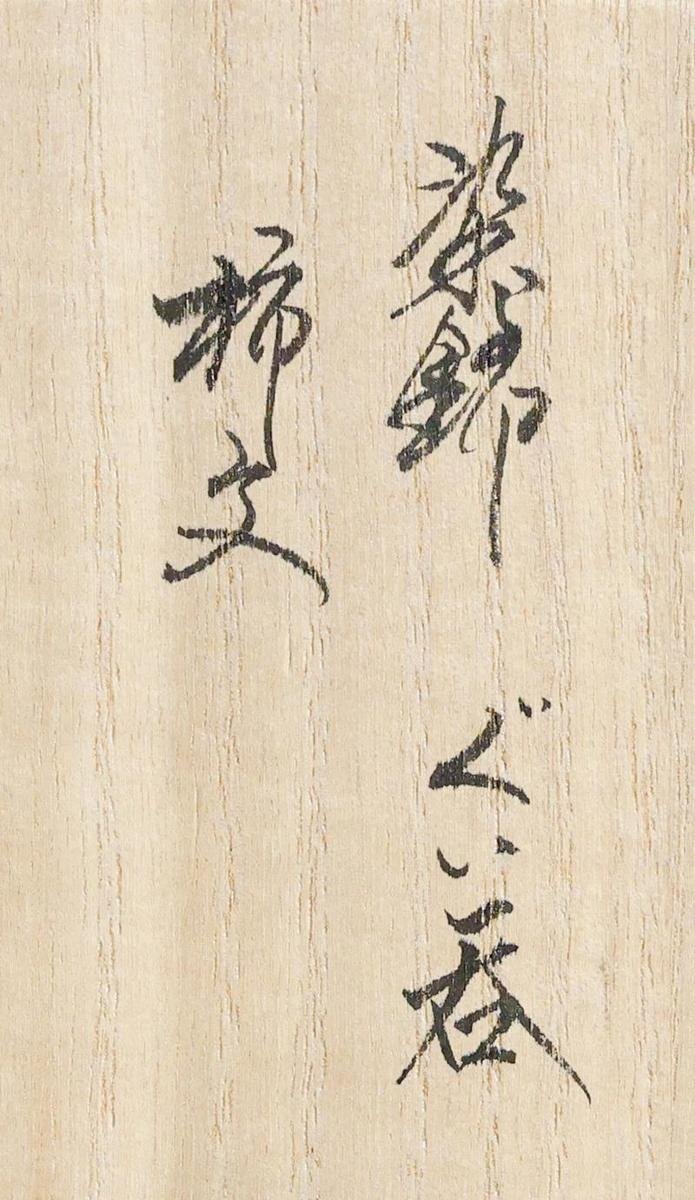 染錦 ぐい呑
柿文